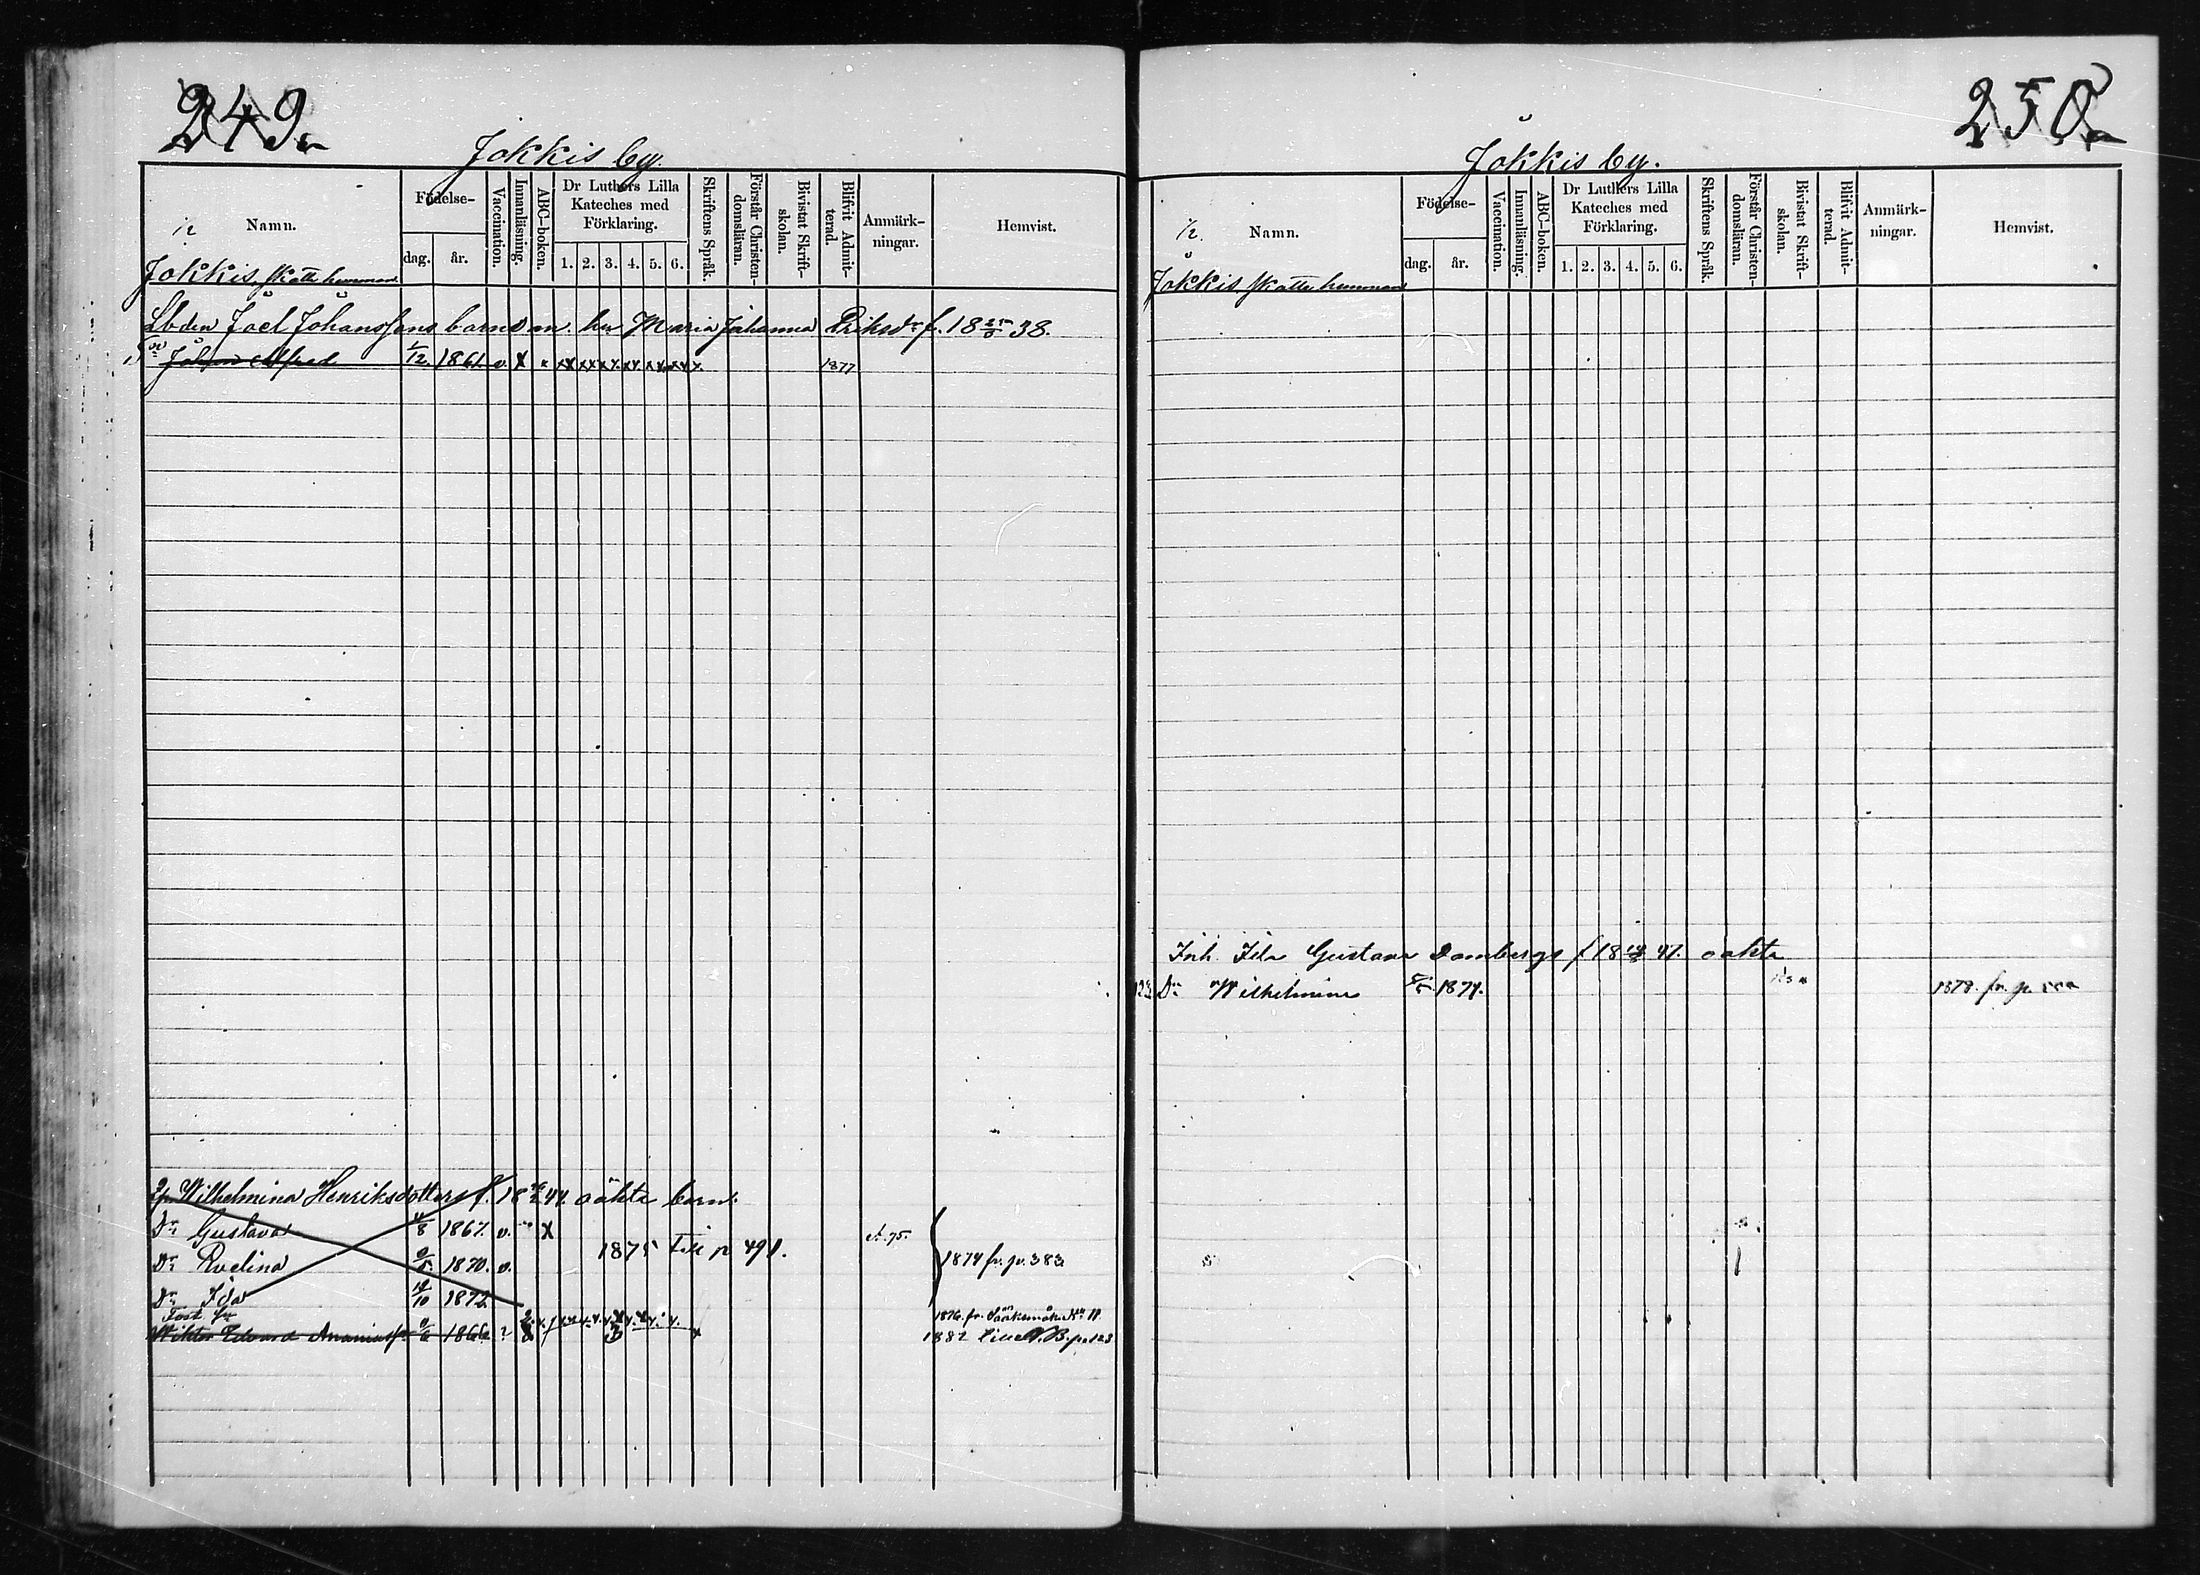 249.
Jokkis by.
½ Namn. Födelse- dag. år. Vaccination. Innanläsning. ABC-boken. Dr Luthers Lilla Kateches med Förklaring. 1. 2. 3. 4. 5. 6. Skriftens Språk. Förstår Christendomsläran. Bivistat Skriftskolan. Blifvit Admitterad. Anmärkningar. Hemvist.
Jokkis, Skatte hemman
Joel Johanssons barn m. hu Maria Johanna Eriksdr f. 18 38.
Johan Alfred 1/12. 1861. v. X x xx xx xx xx xx xx x 1877
Wilhelmina Henriksdotters f. 18 44. oäkta barn.
Dr Gustava 1867. v. X
1875 till p 491.
Dr Evelina 1870. v. 1874 fr. p. 383
Dr Ida 1872
Fost. 1876. fr.
Wiktor Edvard Ananiasson 1882 N.B. p. 123
250
Jokkis by.
½. Namn. Födelse- dag. år. Vaccination. Innanläsning. ABC-boken. Dr Luthers Lilla Kateches med Förklaring. 1. 2. 3. 4. 5. 6. Skriftens Språk. Förstår Christendomsläran. Bivistat Skriftskolan. Blifvit Admitterad. Anmärkningar. Hemvist.
Jokkis, Skatte hemman
Inh. Ida Gustava Dombergs f 18 47. oäkta
Dr Wilhelmina 1874. 1878. fr. p.